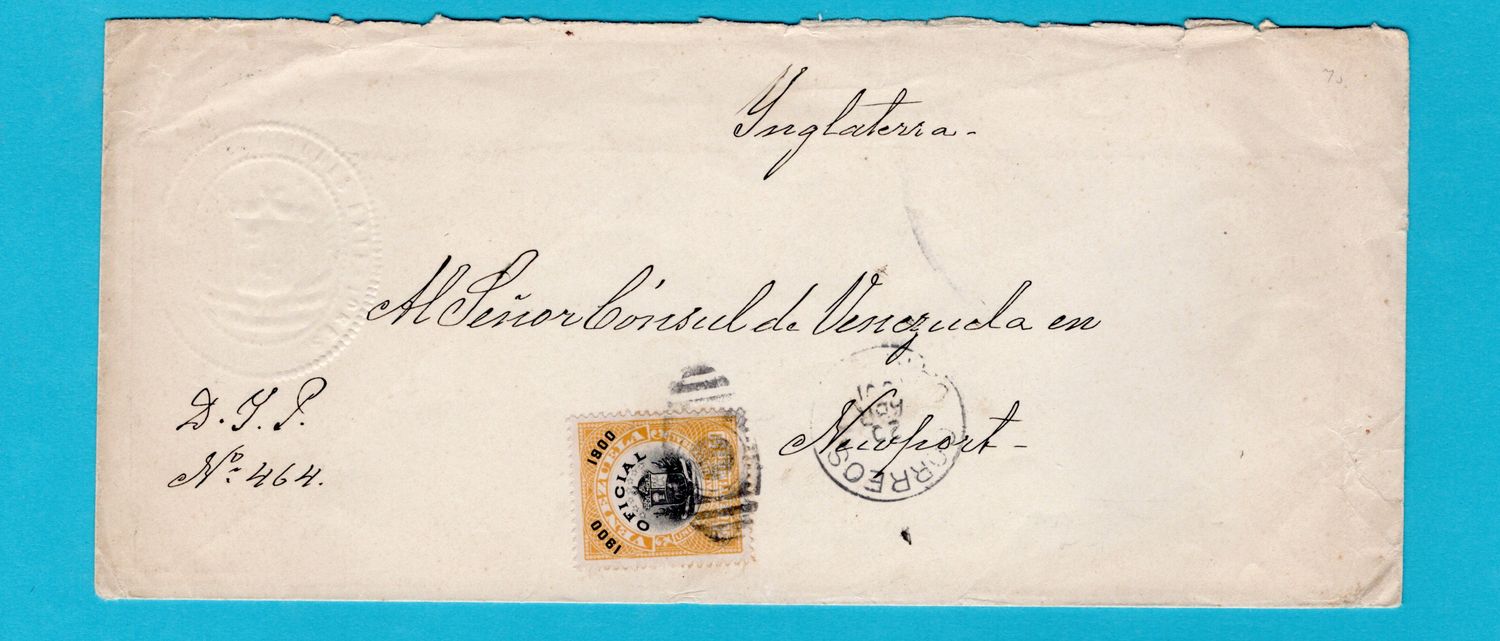 Inglaterra-
Al Señor Cónsul de Venezuela en
Newport-
D. Y. P.
Nº 464.
1900
1900
VENEZUELA
OFICIAL
CORREOS
23